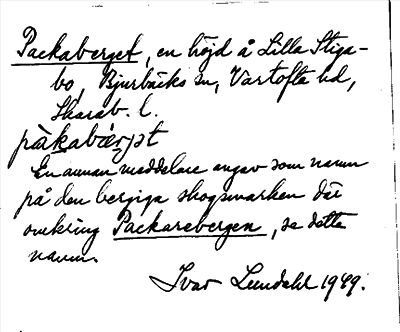 Packaberget, en höjd å Lilla Stiga-
bo, Bjurbäcks sn, Vartofta hd,
Skarab. l.
pàkabær̡jət
En annan meddelare angav som namn
på den bergiga skogsmarken där
omkring Packarebergen, se detta
namn.
Ivar Lundahl 1949.